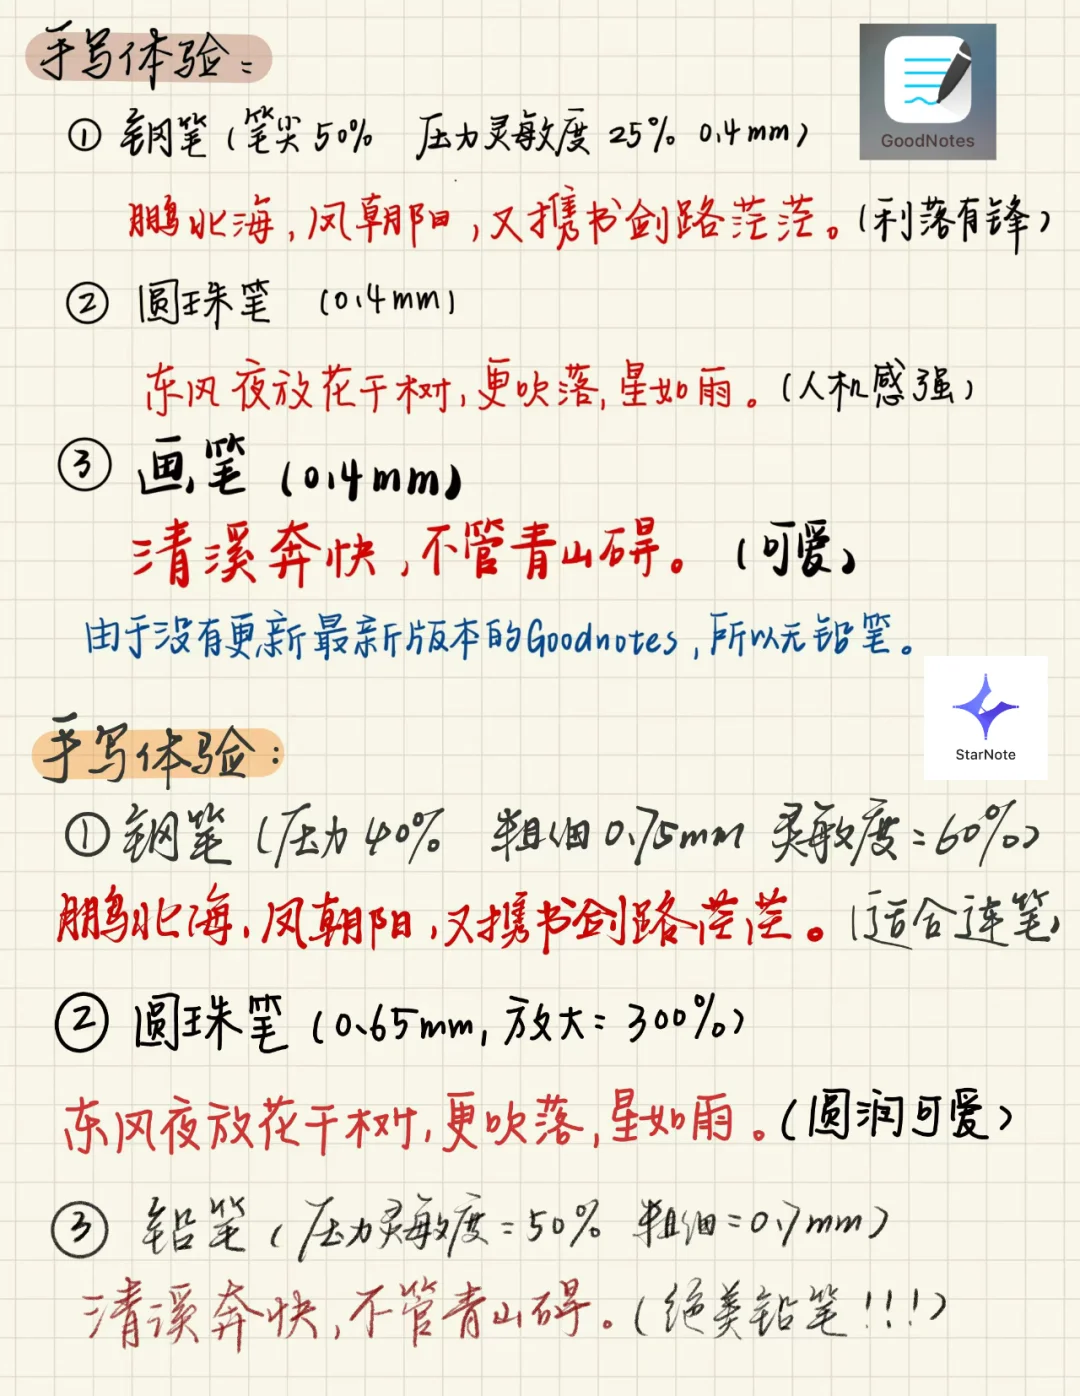 手写体验：
GoodNotes
① 钢笔（笔尖50% 压力灵敏度 25% 0.4mm）
鹏北海，凤朝阳，又携书剑路茫茫。（利落有锋）
② 圆珠笔 （0.4mm）
东风夜放花千树，更吹落，星如雨。（人机感强）
③ 画笔（0.4mm）
清溪奔快，不管青山碍。（可爱）
由于没有更新最新版本的Goodnotes，所以无铅笔。
StarNote
手写体验：
① 钢笔（压力40% 粗细0.75mm 灵敏度=60%）
鹏北海，凤朝阳，又携书剑路茫茫。（适合连笔）
② 圆珠笔（0.65mm，放大=300%）
东风夜放花千树，更吹落，星如雨。（圆润可爱）
③ 铅笔（压力灵敏度=50% 粗细=0.7mm）
清溪奔快，不管青山碍。（绝美铅笔!!!）